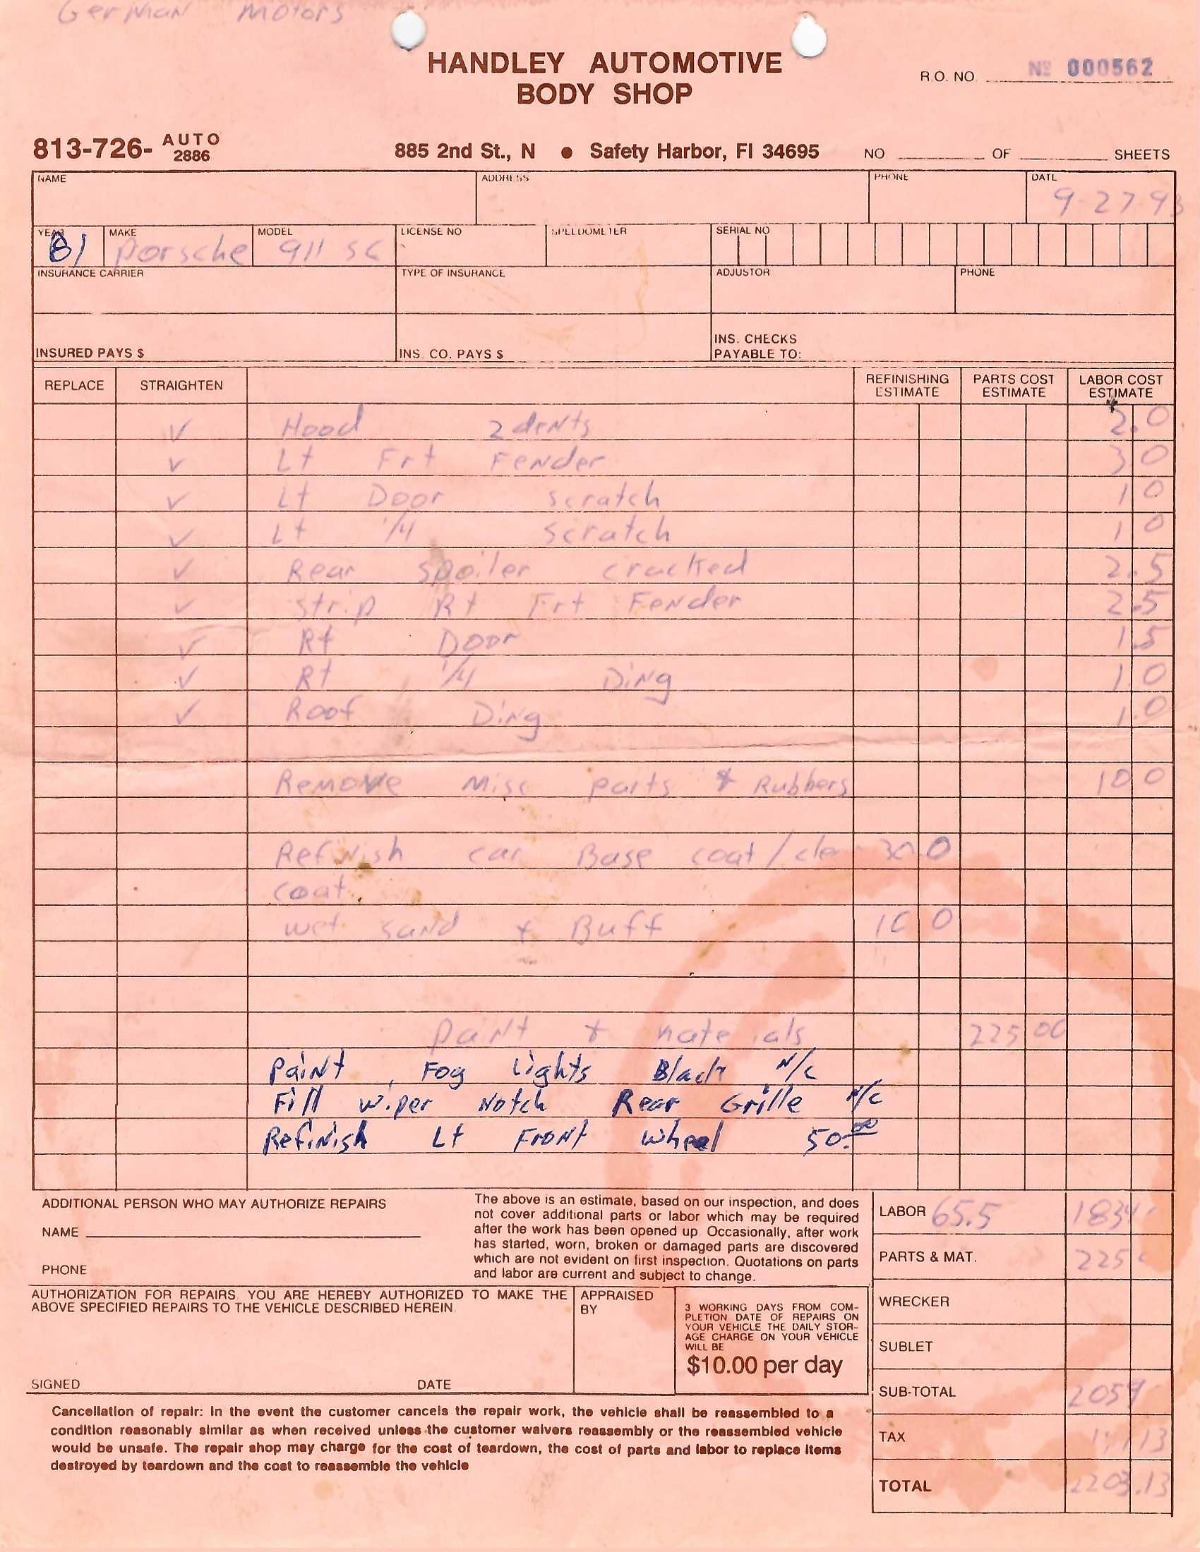 German Motors
HANDLEY AUTOMOTIVE
BODY SHOP
R.O. NO. Nº 000562
813-726- AUTO 2886
885 2nd St., N ● Safety Harbor, Fl 34695
NO ______ OF ______ SHEETS
NAME ADDRESS PHONE DATE
9-27-93
YEAR MAKE MODEL LICENSE NO SPEEDOMETER SERIAL NO
81 Porsche 911 SC
INSURANCE CARRIER TYPE OF INSURANCE ADJUSTOR PHONE
INSURED PAYS $ INS. CO. PAYS $ INS. CHECKS PAYABLE TO:
REPLACE STRAIGHTEN REFINISHING ESTIMATE PARTS COST ESTIMATE LABOR COST ESTIMATE
✓ Hood 2 dents 2.0
✓ Lt Frt Fender 3 0
✓ Lt Door scratch 1 0
✓ Lt 1/4 scratch 1 0
✓ Rear spoiler cracked 2.5
✓ strip Rt Frt Fender 2.5
✓ Rt Door 1.5
✓ Rt 1/4 Ding 1.0
✓ Roof Ding 1.0
Remove Misc parts & Rubbers 10 0
Refinish car Base coat/cle 30 0
coat
wet sand & Buff 10 0
paint & materials 225 00
Paint Fog Lights Black N/C
Fill wiper Notch Rear Grille N/C
Refinish Lt Front wheel 50.00
ADDITIONAL PERSON WHO MAY AUTHORIZE REPAIRS
NAME
PHONE
The above is an estimate, based on our inspection, and does
not cover additional parts or labor which may be required
after the work has been opened up. Occasionally, after work
has started, worn, broken or damaged parts are discovered
which are not evident on first inspection. Quotations on parts
and labor are current and subject to change.
AUTHORIZATION FOR REPAIRS. YOU ARE HEREBY AUTHORIZED TO MAKE THE
ABOVE SPECIFIED REPAIRS TO THE VEHICLE DESCRIBED HEREIN.
SIGNED DATE
APPRAISED
BY
3 WORKING DAYS FROM COM-
PLETION DATE OF REPAIRS ON
YOUR VEHICLE THE DAILY STOR-
AGE CHARGE ON YOUR VEHICLE
WILL BE
$10.00 per day
LABOR 65.5 1834
PARTS & MAT. 225
WRECKER
SUBLET
SUB-TOTAL 2059
TAX
TOTAL 2203.13
Cancellation of repair: In the event the customer cancels the repair work, the vehicle shall be reassembled to a
condition reasonably similar as when received unless the customer waivers reassembly or the reassembled vehicle
would be unsafe. The repair shop may charge for the cost of teardown, the cost of parts and labor to replace items
destroyed by teardown and the cost to reassemble the vehicle